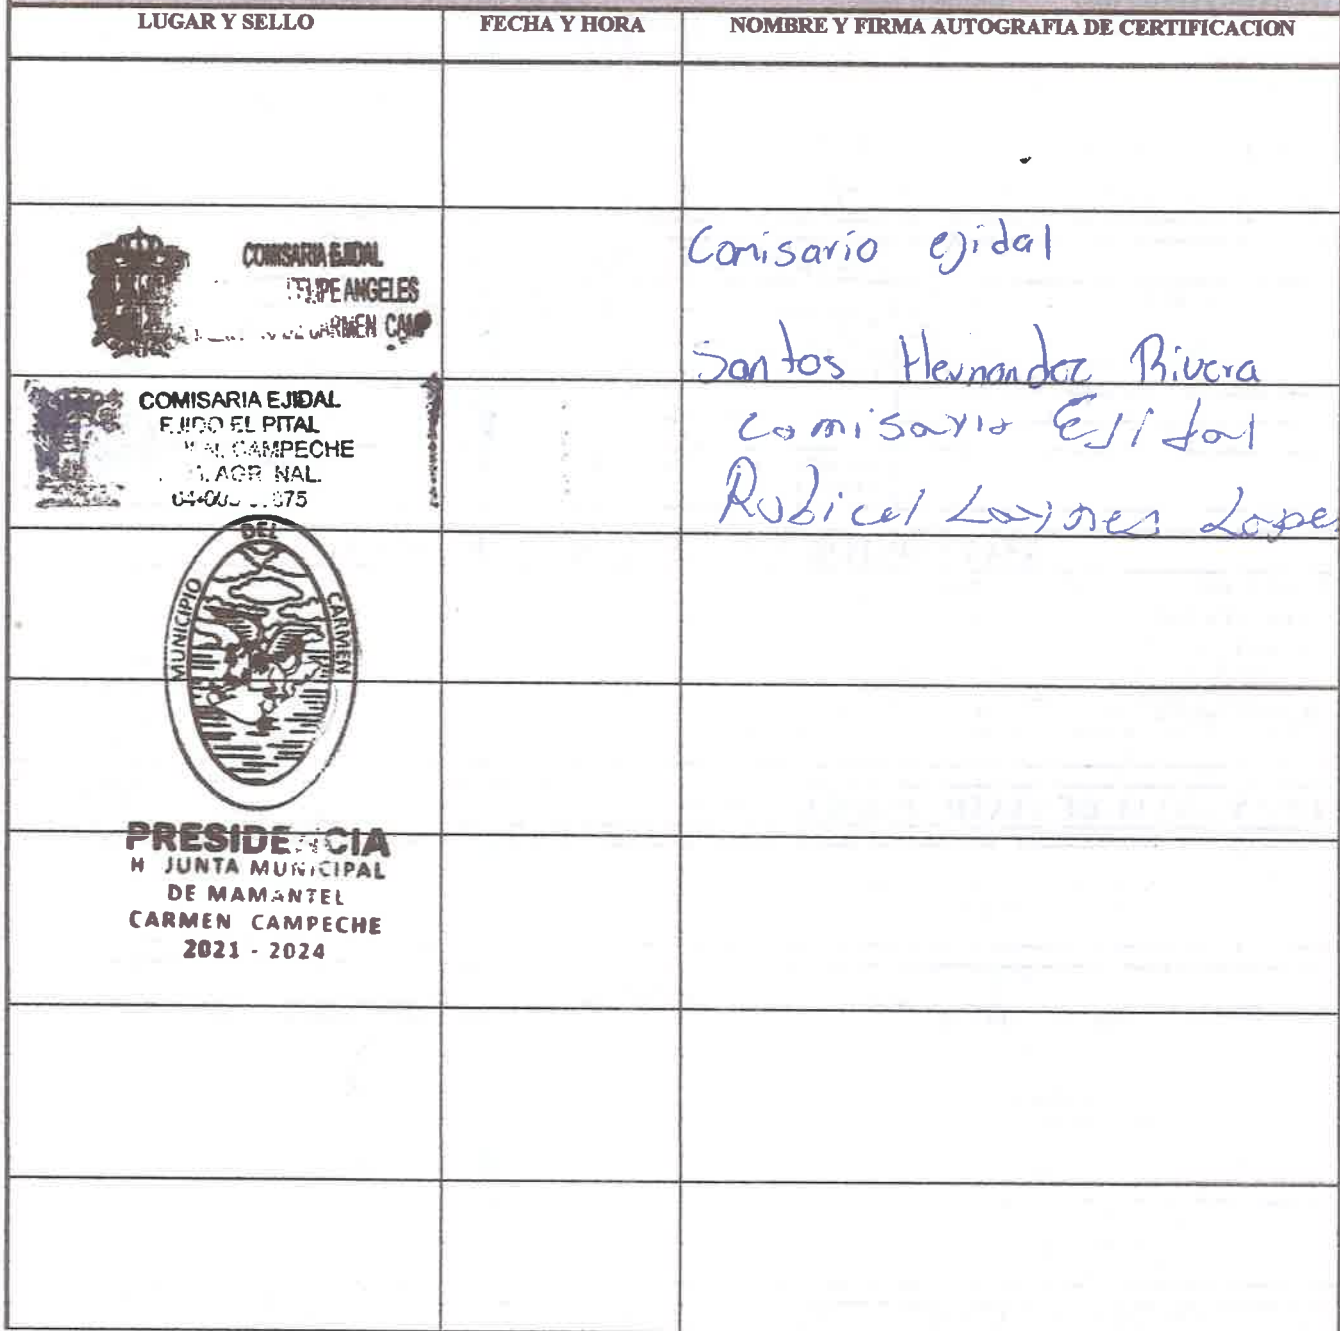 LUGAR Y SELLO
FECHA Y HORA
NOMBRE Y FIRMA AUTOGRAFIA DE CERTIFICACION
COMISARIA EJIDAL
FELIPE ANGELES
DE CARMEN CAMP
Comisario ejidal
Santos Hernandez Rivera
COMISARIA EJIDAL
EJIDO EL PITAL
CAMPECHE
AGR NAL.
Comisario Ejidal
Rubicel Lopez
MUNICIPIO DEL CARMEN
PRESIDENCIA
H JUNTA MUNICIPAL
DE MAMANTEL
CARMEN CAMPECHE
2021 - 2024